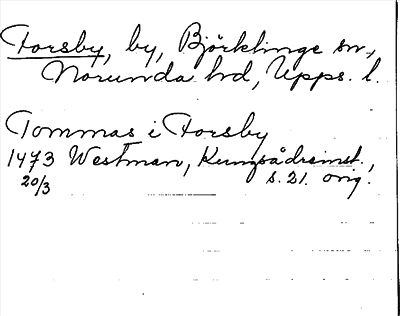 Forsby, by, Björklinge sn.,
Norunda hd, Upps. l.
Tommas i Forsby
1473 Westman, Kungsådreinst.,
20/3 s. 21. orig.